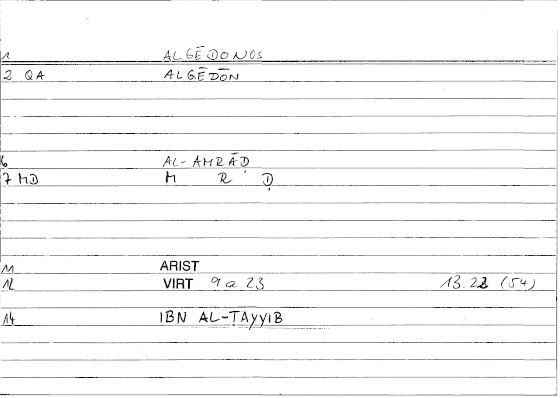 1 ALGĒDONOS
2 QA ALGĒDŌN
6 AL-AMRĀḌ
7 MD M R Ḍ
11 ARIST
12 VIRT 9 a 23 13.22 (54)
14 IBN AL-ṬAYYIB